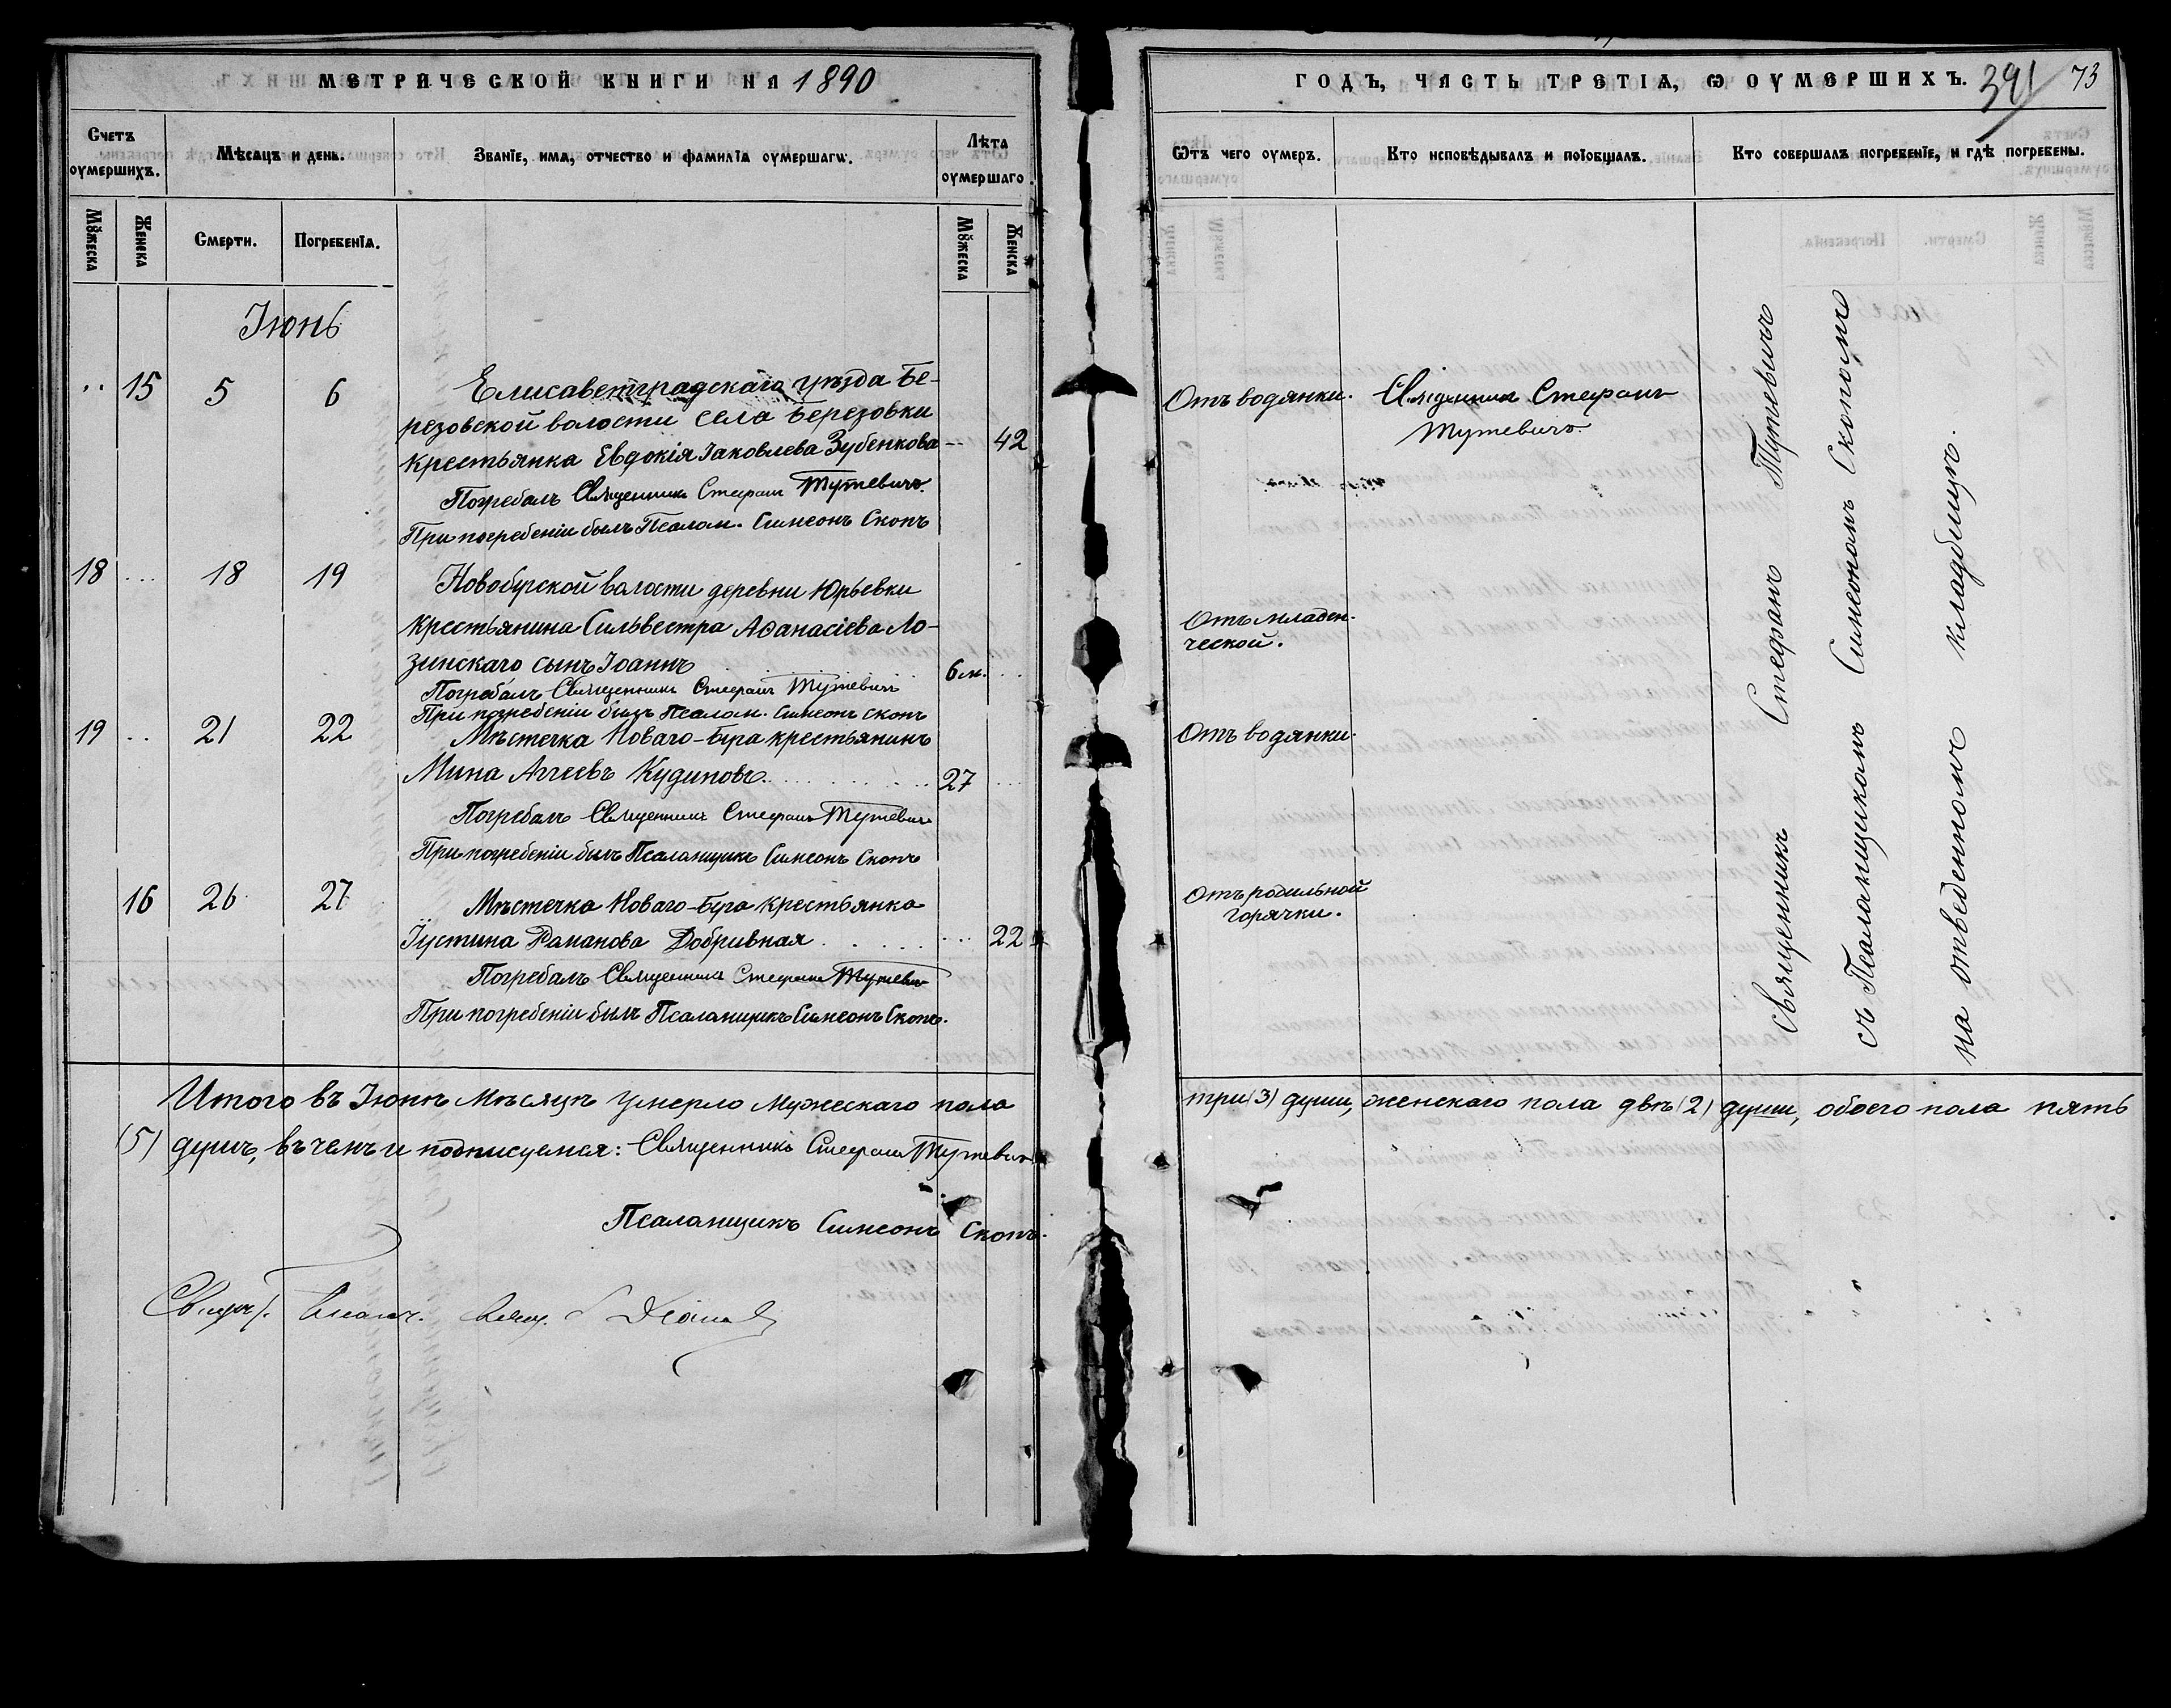 МЕТРИЧЕСКОЙ КНИГИ НА 1890
Счетъ оумершихъ.
Мѣсяцъ и день.
Званїе, имя, отчество и фамилїя оумершагѡ.
Лѣта оумершаго.
Мꙋжеска
Женска
Смерти.
Погребенїя.
Мꙋжеска
Женска
Іюнь
15 5 6 Елисаветградскаго уѣзда Бе-
резовской волости села Березовки
крестьянка Евдокія Іаковлева Зубенкова -- 42
Погребалъ Священникъ Стефанъ Тутевичъ.
При погребеніи былъ Псалом. Симеонъ Скопъ
18 ... 18 19 Новобугской волости деревни Юрьевки
крестьянина Сильвестра Аѳанасіева Ло-
зинскаго сынъ Іоаннъ 6 м.
Погребалъ Священникъ Стефанъ Тутевичъ
При погребеніи былъ Псалом. Симеонъ Скопъ
19 .. 21 22 Мѣстечка Новаго-Буга крестьянинъ
Мина Аггеевъ Кудиновъ. 27
Погребалъ Священникъ Стефанъ Тутевичъ
При погребеніи былъ Псаломщикъ Симеонъ Скопъ
16 26 27 Мѣстечка Новаго-Буга крестьянка
Іустина Романова Добривная 22
Погребалъ Священникъ Стефанъ Тутевичъ
При погребеніи былъ Псаломщикъ Симеонъ Скопъ.
Итого въ Іюнѣ мѣсяцѣ умерло мужескаго пола
(5) душъ, въ чемъ и подписуемся: Священникъ Стефанъ Тутевичъ
Псаломщикъ Симеонъ Скопъ.
ГОДЪ, ЧАСТЬ ТРЕТІЯ, Ѡ ОУМЕРШИХЪ. 391 73
Ѿтъ чего оумеръ.
Кто исповѣдывалъ и прїобщалъ.
Кто совершалъ погребенїе, и гдѣ погребены.
Отъ водянки. Священникъ Стефанъ
Тутевичъ.
Отъ младен-
ческой.
Отъ водянки.
Отъ родильной
горячки.
Священникъ Стефанъ Тутевичъ
съ Псаломщикомъ Симеономъ Скопомъ
на отведенномъ кладбищѣ.
три (3) души, женскаго пола двѣ (2) души, обоего пола пять